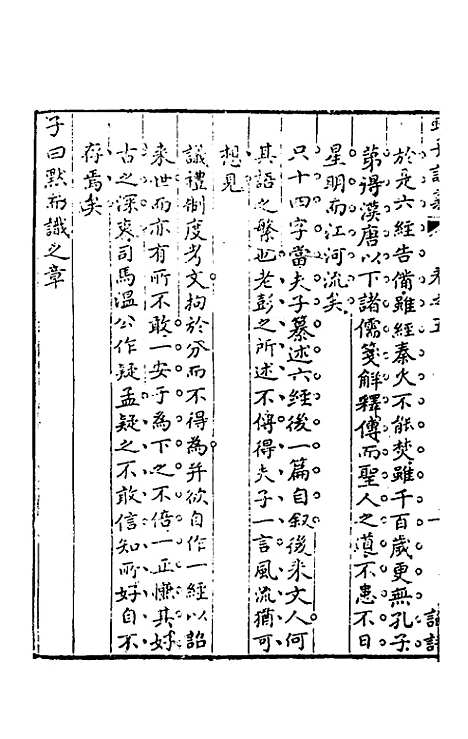 於是六經告備雖經秦火不能焚雖千百歲更無孔子
第得漢唐以下諸儒箋解釋傳而聖人之道不患不日
星明而江河流矣
只十四字當夫子纂述六經後一篇自叙後来文人何
其語之繁也老彭之所述不傳得夫子一言風流猶可
想見
議禮制度考文拘於分而不得為并欲自作一經以詔
来世而亦有所不敢一安于為下之不倍一正慊其好
古之深衷司馬溫公作疑孟疑之不敢信知所好自不
存焉矣
子曰默而識之章